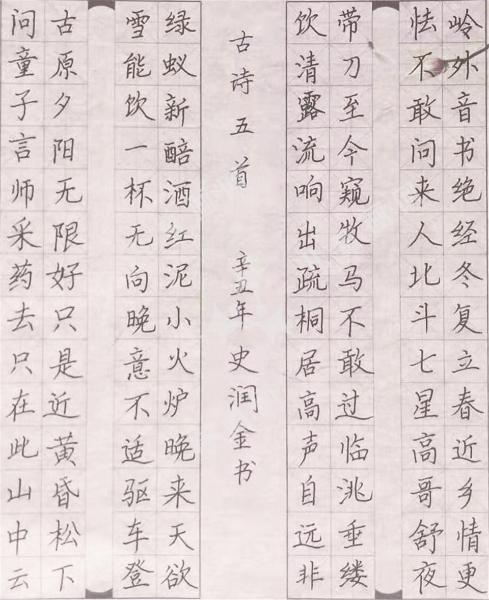 岭外音书绝经冬复立春近乡情更
怯不敢问来人北斗七星高哥舒夜
带刀至今窥牧马不敢过临洮垂缕
饮清露流响出疏桐居高声自远非
古诗五首 辛丑年 史润金书
绿蚁新醅酒红泥小火炉晚来天欲
雪能饮一杯无向晚意不适驱车登
古原夕阳无限好只是近黄昏松下
问童子言师采药去只在此山中云